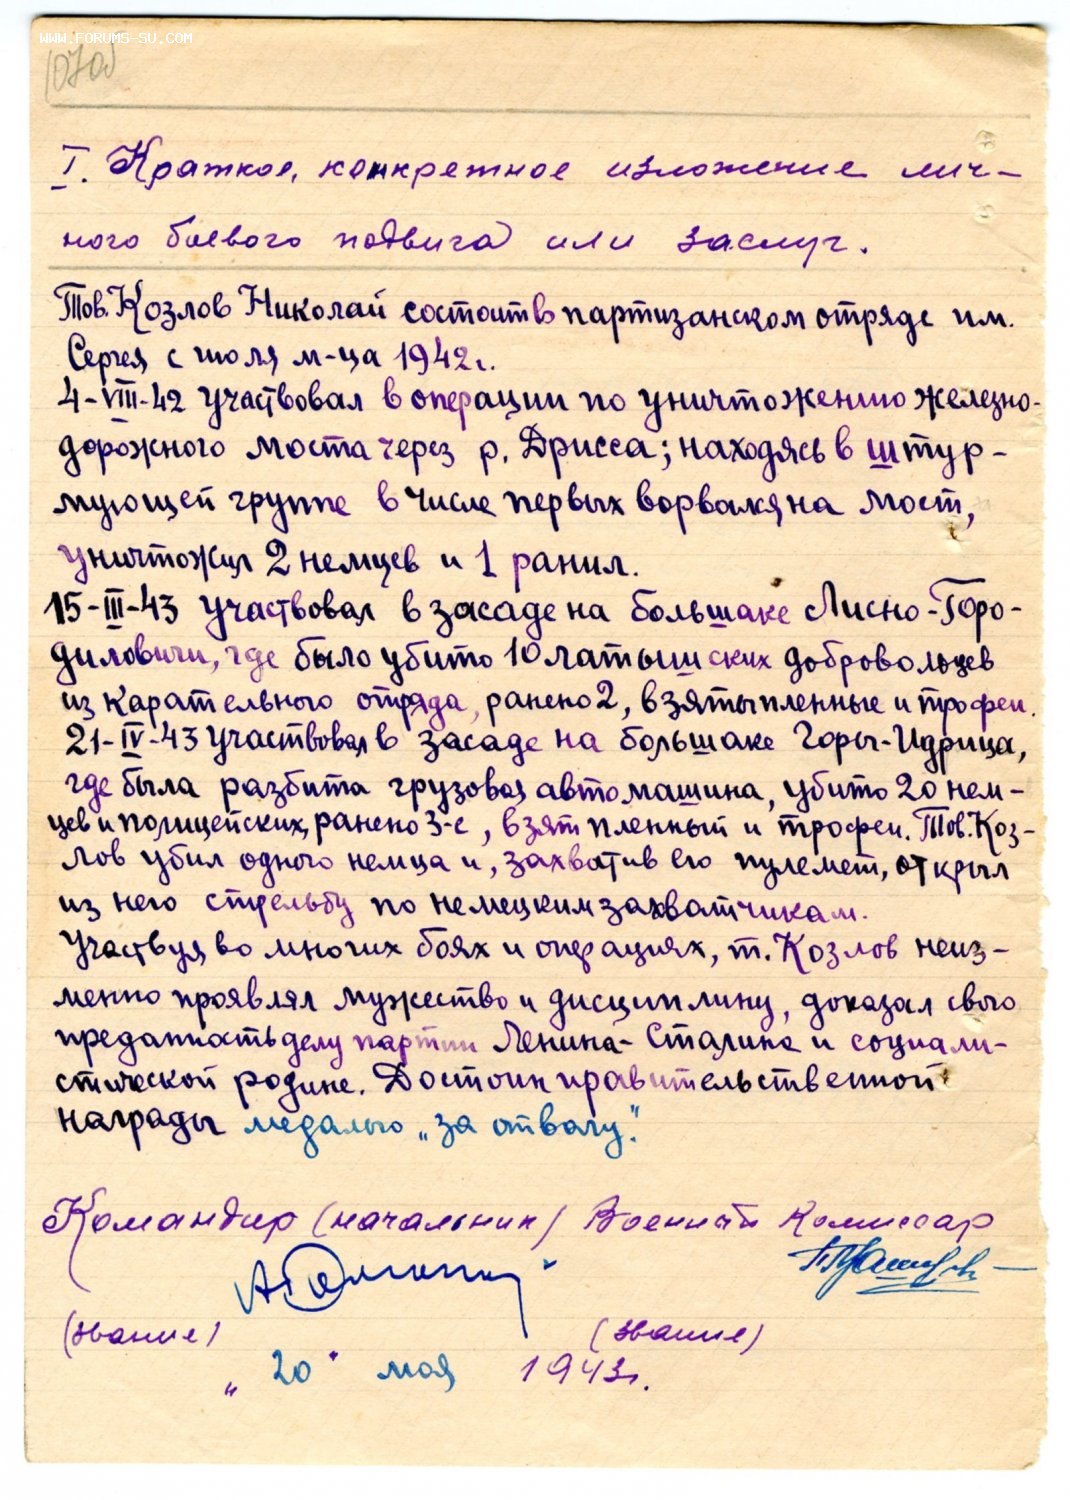 WWW.FORUMS-SU.COM
I. Краткое, конкретное изложение лич-
ного боевого подвига или заслуг.
Тов. Козлов Николай состоит в партизанском отряде им.
Сергея с июля м-ца 1942 г.
4-VIII-42 участвовал в операции по уничтожению железно-
дорожного моста через р. Дрисса; находясь в штур-
мующей группе в числе первых ворвался на мост,
уничтожил 2 немцев и 1 ранил.
15-III-43 участвовал в засаде на большаке Лисно-Горо-
диловичи, где было убито 10 латышских добровольцев
из карательного отряда, ранено 2, взяты пленные и трофеи.
21-IV-43 участвовал в засаде на большаке Горы-Идрица,
где была разбита грузовая автомашина, убито 20 нем-
цев и полицейских, ранено 3-е, взят пленный и трофеи. Тов. Коз-
лов убил одного немца и, захватив его пулемет, открыл
из него стрельбу по немецким захватчикам.
Участвуя во многих боях и операциях, т. Козлов неиз-
менно проявлял мужество и дисциплину, доказал свою
преданность делу партии Ленина-Сталина и социали-
стической родине. Достоин правительственной
награды медалью „За отвагу".
Командир (начальник) Военный комиссар
(звание) (звание)
„20" мая 1943 г.